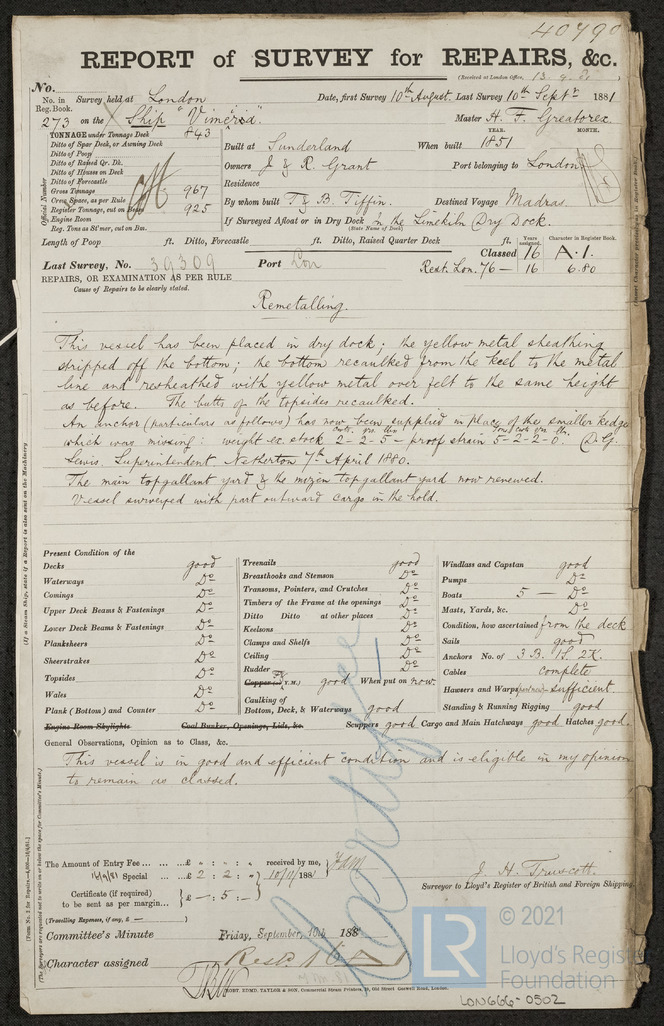 40790
REPORT of SURVEY for REPAIRS, &c.
(Received at London Office, 13.9.81)
No.
No. in Reg. Book. Survey held at London Date, first Survey 10th August Last Survey 10th Septr 1881
273 on the Ship "Vimeira" Master H. F. Greatorex
TONNAGE under Tonnage Deck 843
Ditto of Spar Deck, or Awning Deck
Ditto of Poop
Ditto of Raised Qr. Dk.
Ditto of Houses on Deck
Ditto of Forecastle
Gross Tonnage 967
Crew Space, as per Rule
Register Tonnage, cut on Beam 925
Engine Room
Reg. Tons as St'mer, cut on Bm.
Official Number
Built at Sunderland When built YEAR. 1851 MONTH.
Owners J & R. Grant Port belonging to London
Residence
By whom built T & B. Tiffin. Destined Voyage Madras.
If Surveyed Afloat or in Dry Dock in the Limekiln Dry Dock.
(State Name of Dock)
Length of Poop ft. Ditto, Forecastle ft. Ditto, Raised Quarter Deck ft.
Years assigned. Character in Register Book.
Classed 16 A.1.
Last Survey, No. 39309 Port Lon Rest. Lon. 76 — 16 6.80
REPAIRS, OR EXAMINATION AS PER RULE
Cause of Repairs to be clearly stated.
Remetalling.
This vessel has been placed in dry dock; the yellow metal sheathing
stripped off the bottom; the bottom recaulked from the keel to the metal
line and resheathed with yellow metal over felt to the same height
as before. The butts of the topsides recaulked.
An anchor (particulars as follows) has now been supplied in place of the smaller kedge
which was missing: weight ex. stock 2-2-5 - proof strain 5-2-2-0. (D. G.
Lewis. Superintendent. Netherton 7th April 1880.
The main topgallant yard & the mizen topgallant yard now renewed.
Vessel surveyed with part outward cargo in the hold.
Present Condition of the
Decks good
Waterways Do
Comings Do
Upper Deck Beams & Fastenings Do
Lower Deck Beams & Fastenings Do
Planksheers Do
Sheerstrakes Do
Topsides Do
Wales Do
Plank (Bottom) and Counter Do
Engine Room Skylights Coal Bunker, Openings, Lids, &c.
Treenails good
Breasthooks and Stemson Do
Transoms, Pointers, and Crutches Do
Timbers of the Frame at the openings Do
Ditto Ditto at other places Do
Keelsons Do
Clamps and Shelfs Do
Ceiling Do
Rudder Do
Copper (or Y.M.) good When put on now
Caulking of
Bottom, Deck, & Waterways good
Windlass and Capstan good
Pumps Do
Boats 5 — Do
Masts, Yards, &c. Do
Condition, how ascertained from the deck
Sails good
Anchors No. of 3 B. 1S. 2K.
Cables complete
Hawsers and Warps sufficient
Standing & Running Rigging good
Scuppers good Cargo and Main Hatchways good Hatches good.
General Observations, Opinion as to Class, &c.
This vessel is in good and efficient condition and is eligible in my opinion
to remain as classed.
The Amount of Entry Fee ... ... ... £ " : " : " received by me,
Special ... ... £ 2 : 2 : "
Certificate (if required)
to be sent as per margin... £ — : 5 : —
(Travelling Expenses, if any, £ —)
J. H. Truscott.
Surveyor to Lloyd's Register of British and Foreign Shipping.
Committee's Minute Friday, September, 16th 188
Character assigned Restd 16 A 1
Certificate
PORT. EDMD. TAYLOR & SON, Commercial Steam Printers, Old Street Goswell Road, London.
(If a Steam Ship, state if a Report is also sent on the Machinery
(The Surveyors are requested not to write on or below the space for Committee's Minute.)
LR © 2021
Lloyd's Register
Foundation
LON666-0502